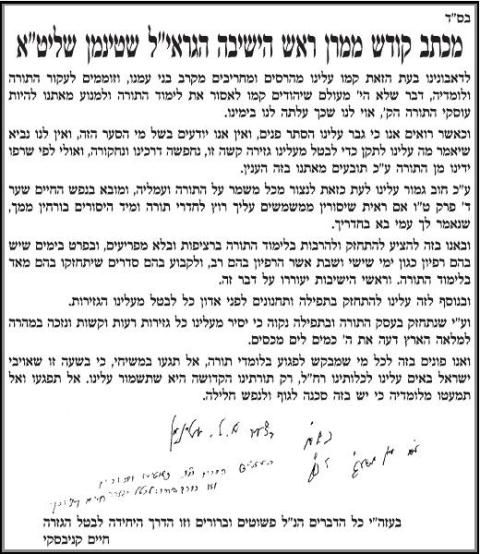 בס"ד
מכתב קודש ממרן ראש הישיבה הגראי"ל שטינמן שליט"א
לדאבונינו בעת הזאת קמו עלינו מהרסים ומחריבים מקרב בני עמנו, וזוממים לעקור התורה
ולומדיה, דבר שלא הי' מעולם שיהודים קמו לאסור את לימוד התורה ולמנוע מאתנו להיות
עוסקי התורה הק', אוי לנו שכך עלתה לנו בימינו.
וכאשר רואים אנו כי גבר עלינו הסתר פנים, ואין אנו יודעים בשל מי הסער הזה, ואין לנו נביא
שיאמר מה עלינו לתקן כדי לבטל מעלינו גזירה קשה זו, נחפשה דרכינו ונחקורה, ואולי לפי שרפו
ידינו מן התורה ע"כ תובעים מאתנו בזה הענין.
ע"כ חוב גמור עלינו לעת כזאת לנצור מכל משמר על התורה ועמליה, ומובא בנפש החיים שער
ד' פרק ט"ו אם ראית שיסורין ממשמשים עליך רוץ לחדרי תורה ומיד היסורים בורחין ממך,
שנאמר לך עמי בא בחדריך.
ובאנו בזה להציע להתחזק ולהרבות בלימוד התורה ברציפות ובלא מפריעים, ובפרט בימים שיש
בהם רפיון כגון ימי שישי ושבת אשר הרפיון בהם רב, ולקבוע בהם סדרים שיתחזקו בהם מאד
בלימוד התורה. וראשי הישיבות יעוררו על דבר זה.
ובנוסף לזה עלינו להתחזק בתפילה ותחנונים לפני אדון כל לבטל מעלינו הגזירות.
וע"י שנתחזק בעסק התורה ובתפילה נקוה כי יסיר מעלינו כל גזירות רעות וקשות ונזכה במהרה
למלאה הארץ דעה את ה' כמים לים מכסים.
ואנו פונים בזה לכל מי שמבקש לפגוע בלומדי תורה, אל תגעו במשיחי, כי בשעה זו שאויבי
ישראל באים עלינו לכלותינו רח"ל, רק תורתינו הקדושה היא שתשמור עלינו. אל תפגעו ואל
תמעטו מלומדיה כי יש בזה סכנה לגוף ולנפש חלילה.
א. ל. שטינמן
בעזה"י כל הדברים הנ"ל פשוטים וברורים וזו הדרך היחידה לבטל הגזרה
חיים קניבסקי